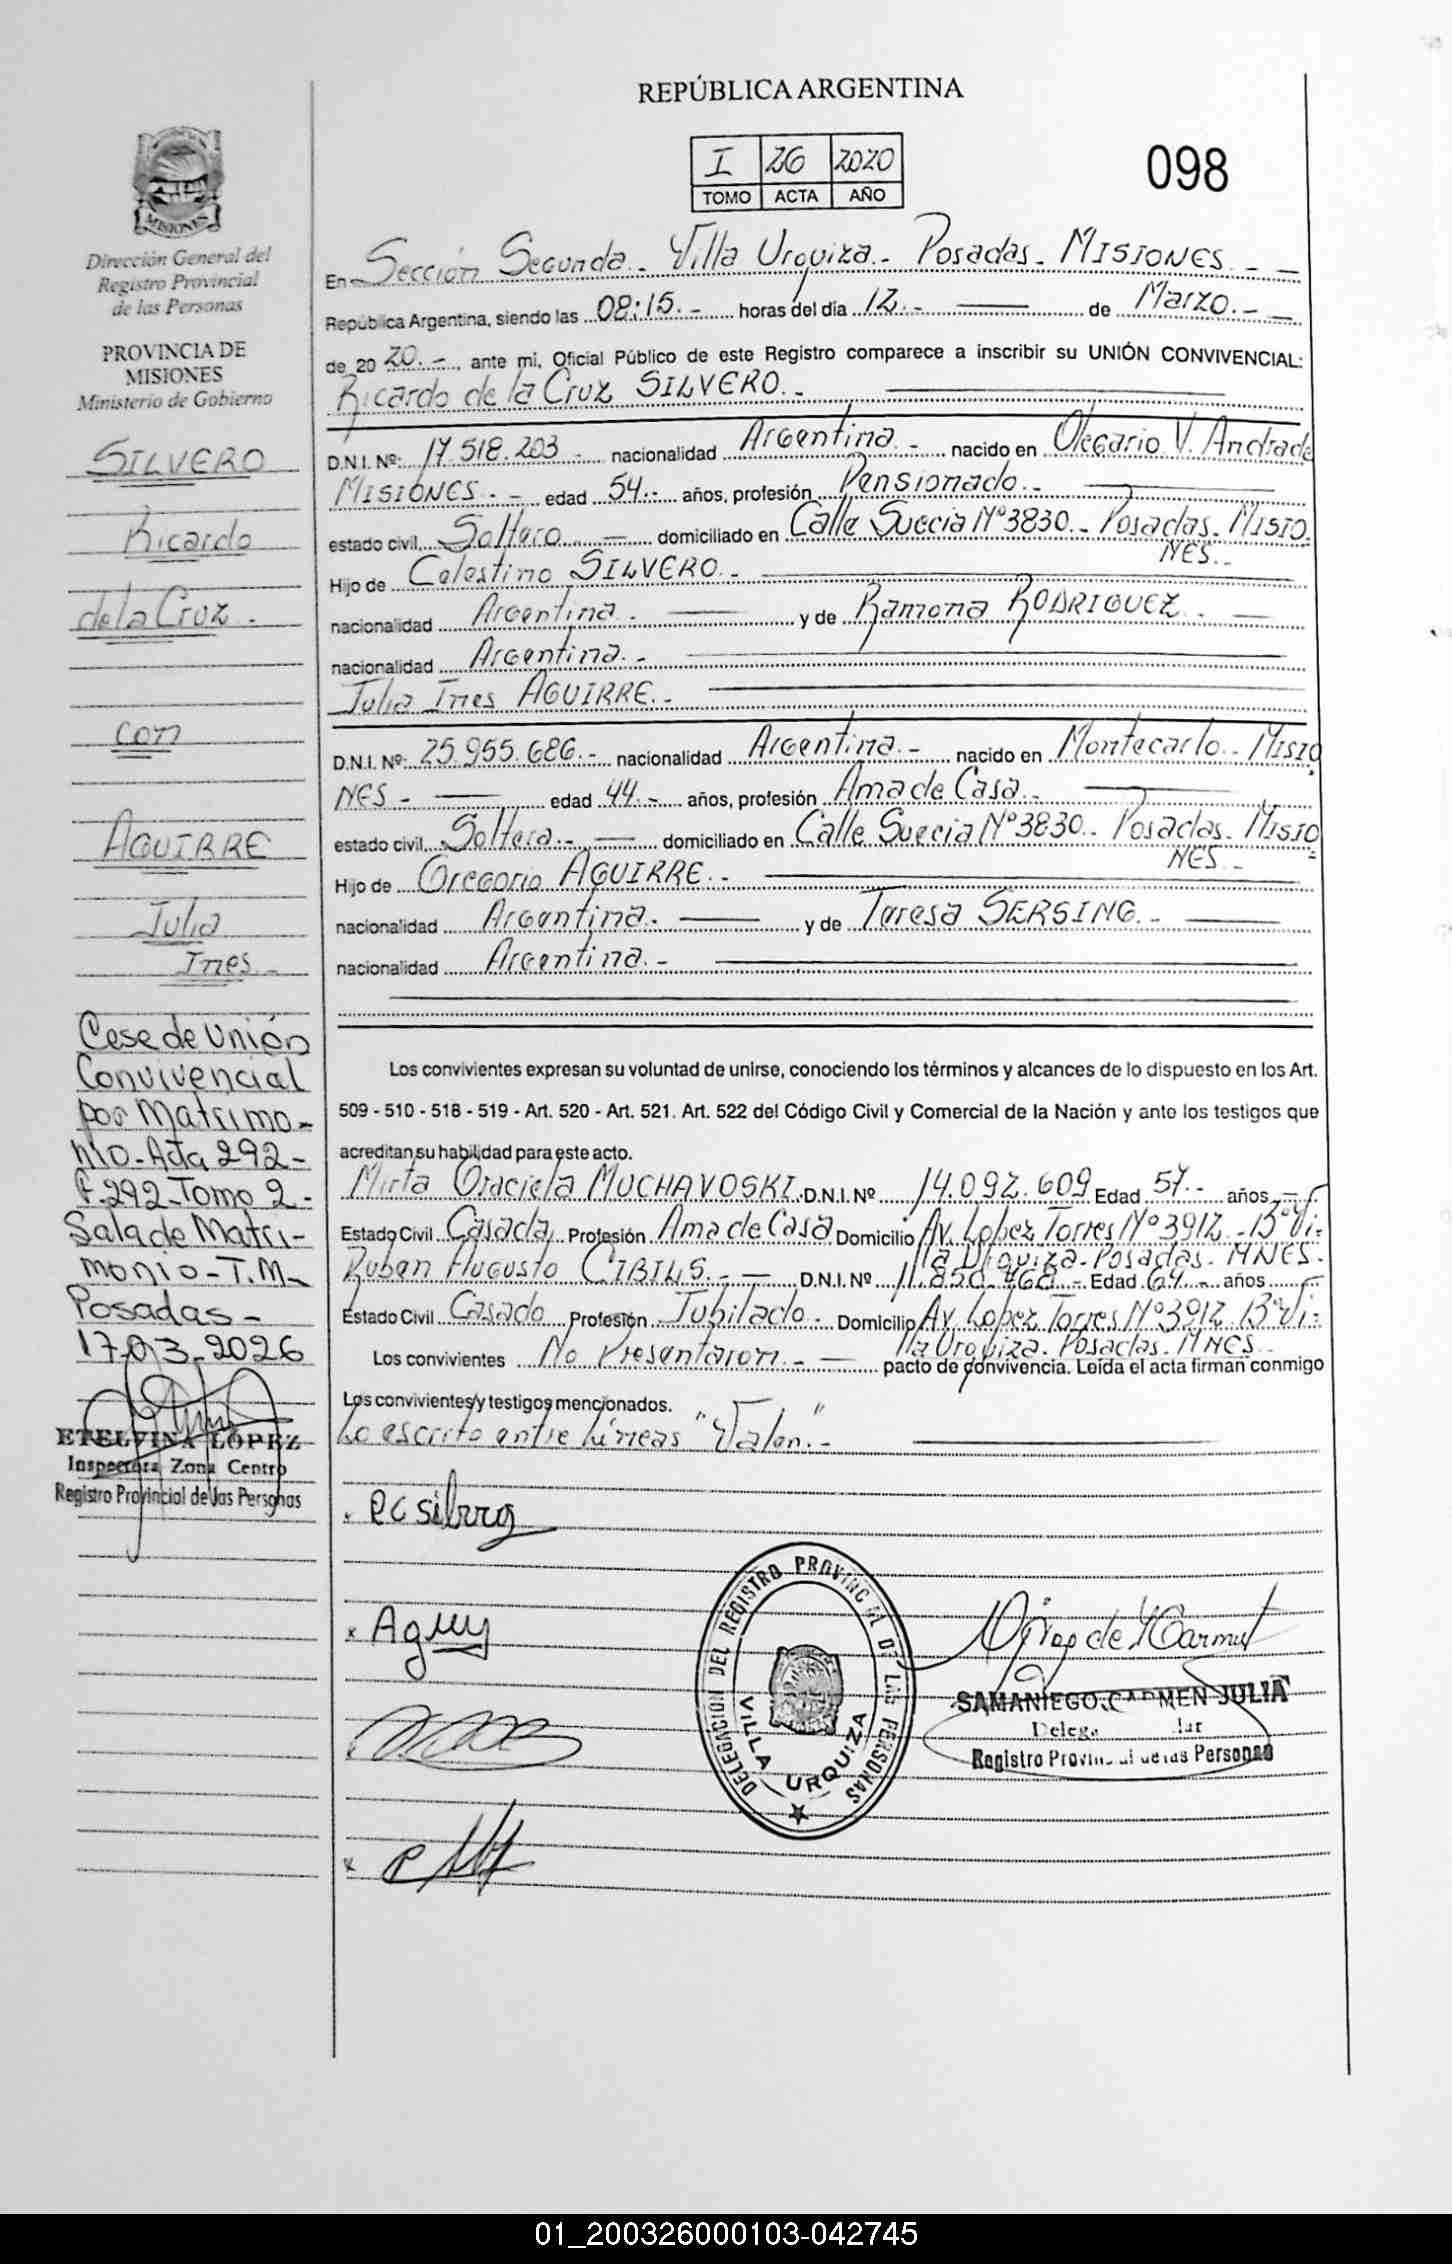 REPÚBLICA ARGENTINA
I 26 2020
TOMO ACTA AÑO
098
MISIONES
Dirección General del
Registro Provincial
de las Personas
PROVINCIA DE
MISIONES
Ministerio de Gobierno
SILVERO
Ricardo
de la Cruz.-
con
AGUIRRE
Julia
Ines.-
Cese de Unión
Convivencial
por Matrimo-
nio-Acta 292-
F.292-Tomo 2-
Sala de Matri-
monio-T.M-
Posadas-
17-03-2026
ETELVINA LOPEZ
Inspectora Zona Centro
Registro Provincial de las Personas
En Sección Segunda.- Villa Urquiza.- Posadas.- MISIONES.- -
República Argentina, siendo las 08:15.- horas del día 12.- de Marzo.- -
de 20 20.-, ante mi, Oficial Público de este Registro comparece a inscribir su UNIÓN CONVIVENCIAL:
Ricardo de la Cruz SILVERO.-
D.N.I. Nº: 17.518.203.- nacionalidad Argentina.- nacido en Olegario V. Andrade
MISIONES.- - edad 54.- años, profesión Pensionado.-
estado civil Soltero - domiciliado en Calle Suecia Nº3830.- Posadas. MISIO
NES.-
Hijo de Celestino SILVERO.-
nacionalidad Argentina.- y de Ramona RODRIGUEZ.-
nacionalidad Argentina.-
Julia Ines AGUIRRE.-
D.N.I. Nº: 25.955.686.- nacionalidad Argentina.- nacido en Montecarlo.- MISIO
NES.- edad 44.- años, profesión Ama de Casa.-
estado civil Soltera.- domiciliado en Calle Suecia Nº3830.- Posadas. MISIO
NES.-
Hijo de Gregorio AGUIRRE.-
nacionalidad Argentina.- y de Teresa SERSING.-
nacionalidad Argentina.-
Los convivientes expresan su voluntad de unirse, conociendo los términos y alcances de lo dispuesto en los Art.
509 - 510 - 518 - 519 - Art. 520 - Art. 521. Art. 522 del Código Civil y Comercial de la Nación y ante los testigos que
acreditan su habilidad para este acto.
Mirta Graciela MUCHAVOSKI. D.N.I. Nº 14.092.609 Edad 57.- años
Estado Civil Casada Profesión Ama de Casa Domicilio Av. Lopez Torres Nº3912.- Bº Vi-
lla Urquiza. Posadas. MNES.-
Ruben Augusto CIBILS.- - D.N.I. Nº 11.850.460.- Edad 64.- años
Estado Civil Casado Profesión Jubilado.- Domicilio Av. Lopez Torres Nº3912 Bº Vi-
lla Urquiza. Posadas. MNES.-
Los convivientes No Presentaron.- - pacto de convivencia. Leída el acta firman conmigo
Los convivientes y testigos mencionados.
Lo escrito entre Líneas "Valen".-
DELEGACION DEL REGISTRO PROVINCIAL DE LAS PERSONAS
VILLA URQUIZA
SAMANIEGO CARMEN JULIA
Registro Provincial de las Personas
01_200326000103-042745